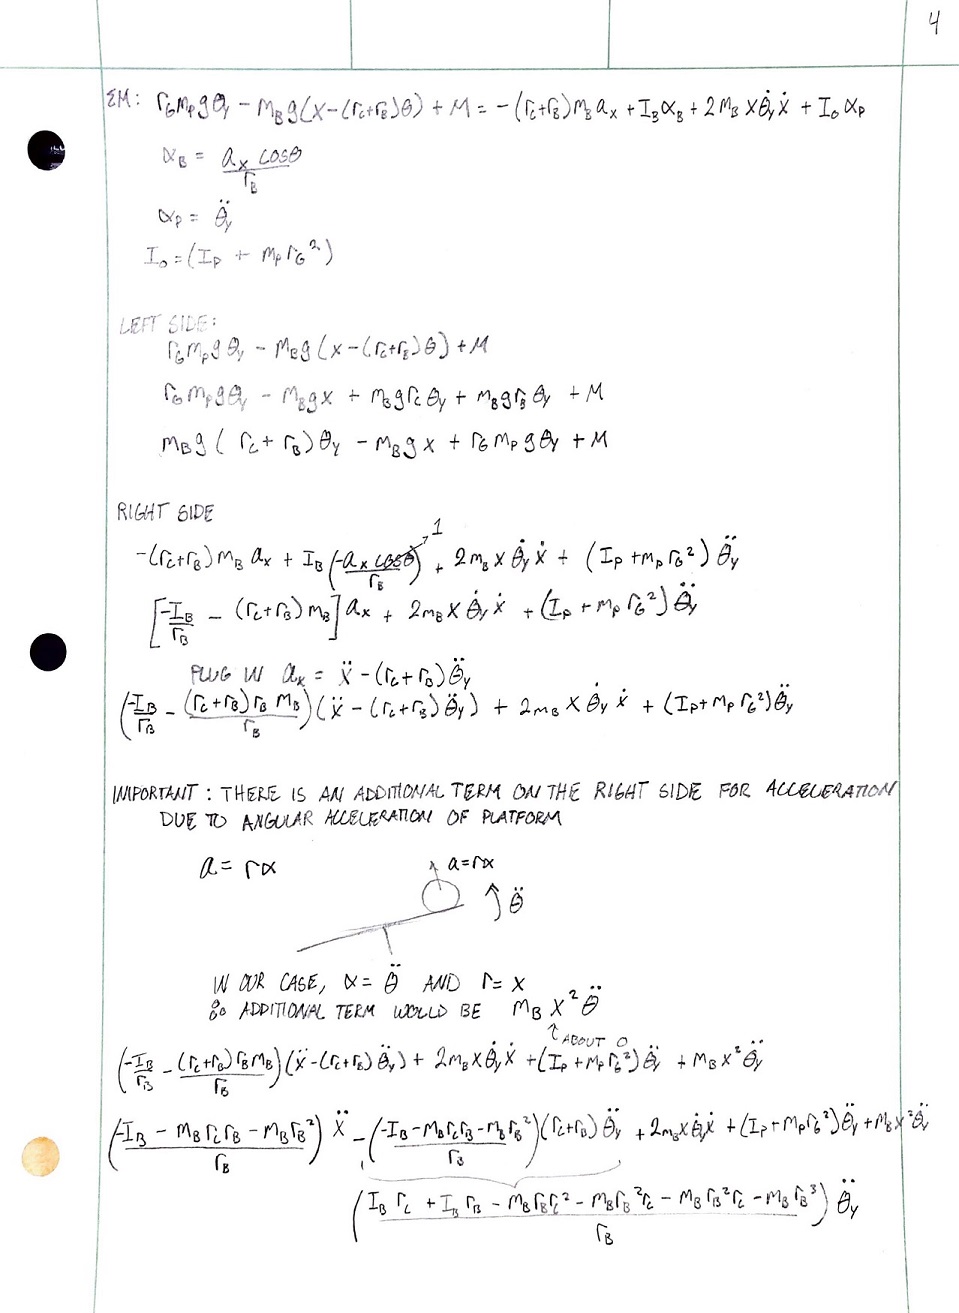 4
ΣM: r_G m_P g θ_y - m_B g (x-(r_C+r_B)θ) + M = -(r_C+r_B) m_B a_x + I_B α_B + 2 m_B x θ̇_y ẋ + I_o α_P
α_B = a_x cosθ / r_B
α_P = θ̈_y
I_o = (I_P + m_P r_G²)
LEFT SIDE:
r_G m_P g θ_y - m_B g (x-(r_C+r_B)θ) + M
r_G m_P g θ_y - m_B g x + m_B g r_C θ_y + m_B g r_B θ_y + M
m_B g (r_C + r_B) θ_y - m_B g x + r_G m_P g θ_y + M
RIGHT SIDE
-(r_C+r_B) m_B a_x + I_B (-a_x cosθ / r_B) + 2 m_B x θ̇_y ẋ + (I_P + m_P r_G²) θ̈_y
1
[-I_B / r_B - (r_C+r_B) m_B] a_x + 2 m_B x θ̇_y ẋ + (I_P + m_P r_G²) θ̈_y
PLUG IN a_x = ẍ - (r_C + r_B) θ̈_y
(-I_B / r_B - (r_C+r_B) r_B m_B / r_B)(ẍ - (r_C+r_B) θ̈_y) + 2 m_B x θ̇_y ẋ + (I_P + m_P r_G²) θ̈_y
IMPORTANT: THERE IS AN ADDITIONAL TERM ON THE RIGHT SIDE FOR ACCELERATION
DUE TO ANGULAR ACCELERATION OF PLATFORM
a = rα
a = rα
θ̈
IN OUR CASE, α = θ̈ AND r = x
∴ ADDITIONAL TERM WOULD BE m_B x² θ̈
↑ ABOUT O
(-I_B / r_B - (r_C+r_B) r_B m_B / r_B)(ẍ-(r_C+r_B) θ̈_y) + 2 m_B x θ̇_y ẋ + (I_P + m_P r_G²) θ̈_y + m_B x² θ̈_y
((-I_B - m_B r_C r_B - m_B r_B²) / r_B) ẍ - ((-I_B - m_B r_C r_B - m_B r_B²) / r_B)(r_C+r_B) θ̈_y + 2 m_B x θ̇_y ẋ + (I_P + m_P r_G²) θ̈_y + m_B x² θ̈_y
((I_B r_C + I_B r_B - m_B r_B r_C² - m_B r_B² r_C - m_B r_B² r_C - m_B r_B³) / r_B) θ̈_y